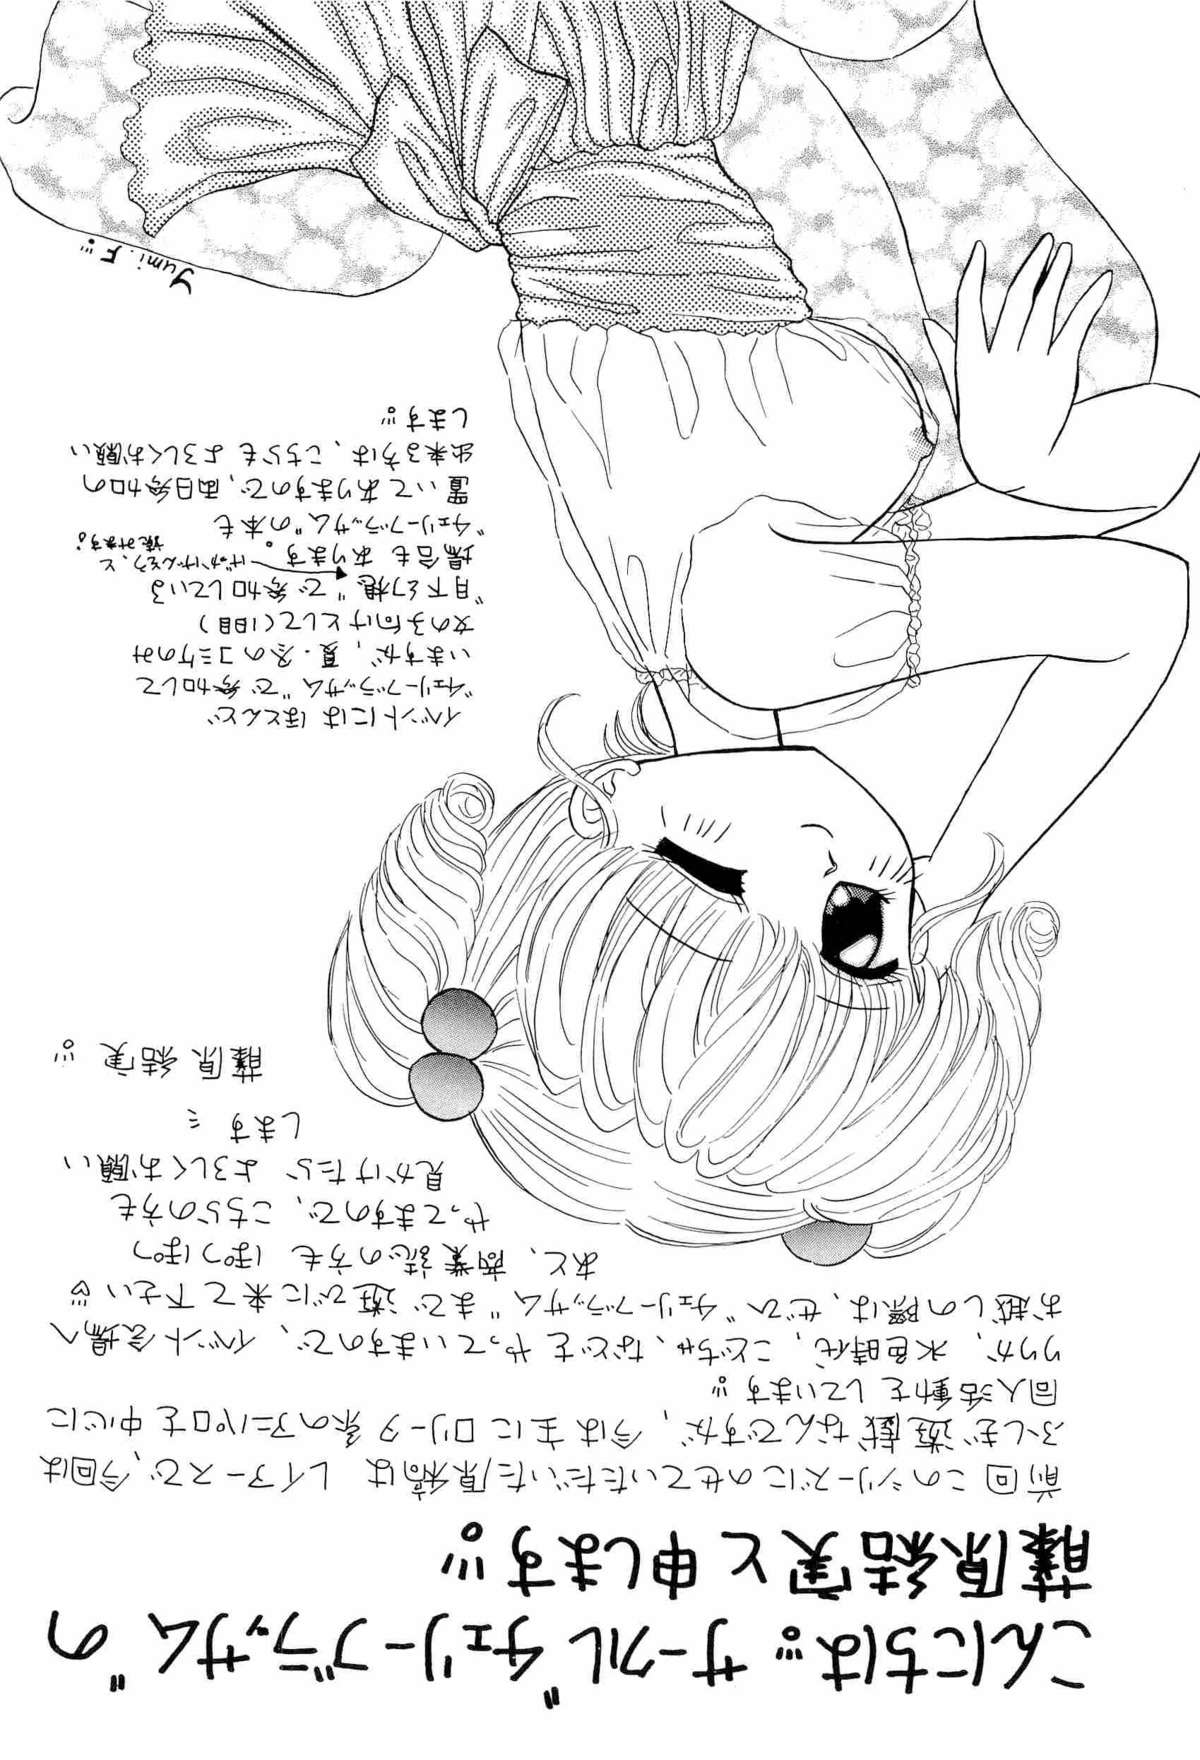 こんにちは サークル"チェリーブラッサム"の
藤原結実と申します
前回このシリーズにのせていただいた原稿は レイアースで、今回は
ふしぎ遊戯なんですが、今は主にロリータ系のアニパロを中心に
同人活動をしています
リリカ、水色時代、こどちゃ、などをやっていますので、イベント会場へ
お越しの際は、ぜひ"チェリーブラッサム"まで遊びに来て下さい♡
あと、商業誌の方も ぽつぽつ
やってますので、こちらの方も
見かけたら よろしくお願い
します
藤原結実
イベントには ほとんど
"チェリーブラッサム"で参加して
いますが、夏・冬のコミケのみ
女の子向けとして(1日目)
"月下幻想"で参加している
場合もあります。
げっかげんそう、と
読みます。
"チェリーブラッサム"の本も
置いてありますので、両日参加の
出来る方は、こちらもよろしくお願い
します
Yumi.F